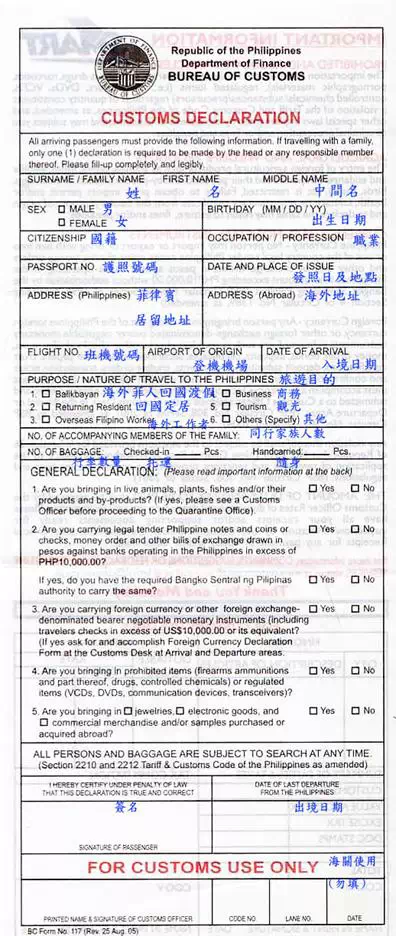 Republic of the Philippines
Department of Finance
BUREAU OF CUSTOMS
CUSTOMS DECLARATION
All arriving passengers must provide the following information. If travelling with a family, only one (1) declaration is required to be made by the head or any responsible member thereof. Please fill-up completely and legibly.
SURNAME / FAMILY NAME FIRST NAME MIDDLE NAME
姓 名 中間名
SEX □ MALE 男 BIRTHDAY (MM / DD / YY)
□ FEMALE 女 出生日期
CITIZENSHIP 國籍 OCCUPATION / PROFESSION 職業
PASSPORT NO. 護照號碼 DATE AND PLACE OF ISSUE
發照日及地點
ADDRESS (Philippines) 菲律賓 ADDRESS (Abroad) 海外地址
居留地址
FLIGHT NO. 班機號碼 AIRPORT OF ORIGIN DATE OF ARRIVAL
登機機場 入境日期
PURPOSE / NATURE OF TRAVEL TO THE PHILIPPINES 旅遊目的
1. □ Balikbayan 海外菲人回國渡假 4. □ Business 商務
2. □ Returning Resident 回國定居 5. □ Tourism 觀光
3. □ Overseas Filipino Worker 海外工作者 6. □ Others (Specify) 其他
NO. OF ACCOMPANYING MEMBERS OF THE FAMILY: 同行家族人數
NO. OF BAGGAGE: Checked-in Pcs. Handcarried: Pcs.
行李數量 托運 隨身
GENERAL DECLARATION: (Please read important information at the back)
1. Are you bringing in live animals, plants, fishes and/or their □ Yes □ No
products and by-products? (If yes, please see a Customs
Officer before proceeding to the Quarantine Office).
2. Are you carrying legal tender Philippine notes and coins or □ Yes □ No
checks, money order and other bills of exchange drawn in
pesos against banks operating in the Philippines in excess of
PHP10,000.00?
If yes, do you have the required Bangko Sentral ng Pilipinas □ Yes □ No
authority to carry the same?
3. Are you carrying foreign currency or other foreign exchange- □ Yes □ No
denominated bearer negotiable monetary instruments (including
travelers checks in excess of US$10,000.00 or its equivalent?
(If yes ask for and accomplish Foreign Currency Declaration
Form at the Customs Desk at Arrival and Departure areas.
4. Are you bringing in prohibited items (firearms ammunitions □ Yes □ No
and part thereof, drugs, controlled chemicals) or regulated
items (VCDs, DVDs, communication devices, transceivers)?
5. Are you bringing in □ jewelries, □ electronic goods, and □ Yes □ No
□ commercial merchandise and/or samples purchased or
acquired abroad?
ALL PERSONS AND BAGGAGE ARE SUBJECT TO SEARCH AT ANY TIME.
(Section 2210 and 2212 Tariff & Customs Code of the Philippines as amended)
I HEREBY CERTIFY UNDER PENALTY OF LAW DATE OF LAST DEPARTURE
THAT THIS DECLARATION IS TRUE AND CORRECT FROM THE PHILIPPINES
簽名 出境日期
SIGNATURE OF PASSENGER
FOR CUSTOMS USE ONLY 海關使用
(勿填)
PRINTED NAME & SIGNATURE OF CUSTOMS OFFICER CODE NO. LANE NO. DATE
BC Form No. 117 (Rev. 25 Aug. 05)